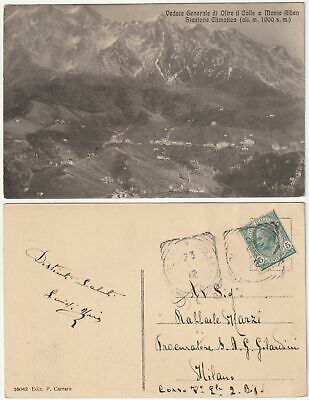 Veduta Generale di Oltre il Colle e Monte Alben
Stazione Climatica (alt. m. 1000 s. m.)
23
12
5
Distinti Saluti
Luigi
Al Sig.
Raffaele Marzi
Procuratore S.A.G. Gilardini
Milano
Corso
38062 Ediz. P. Carrara